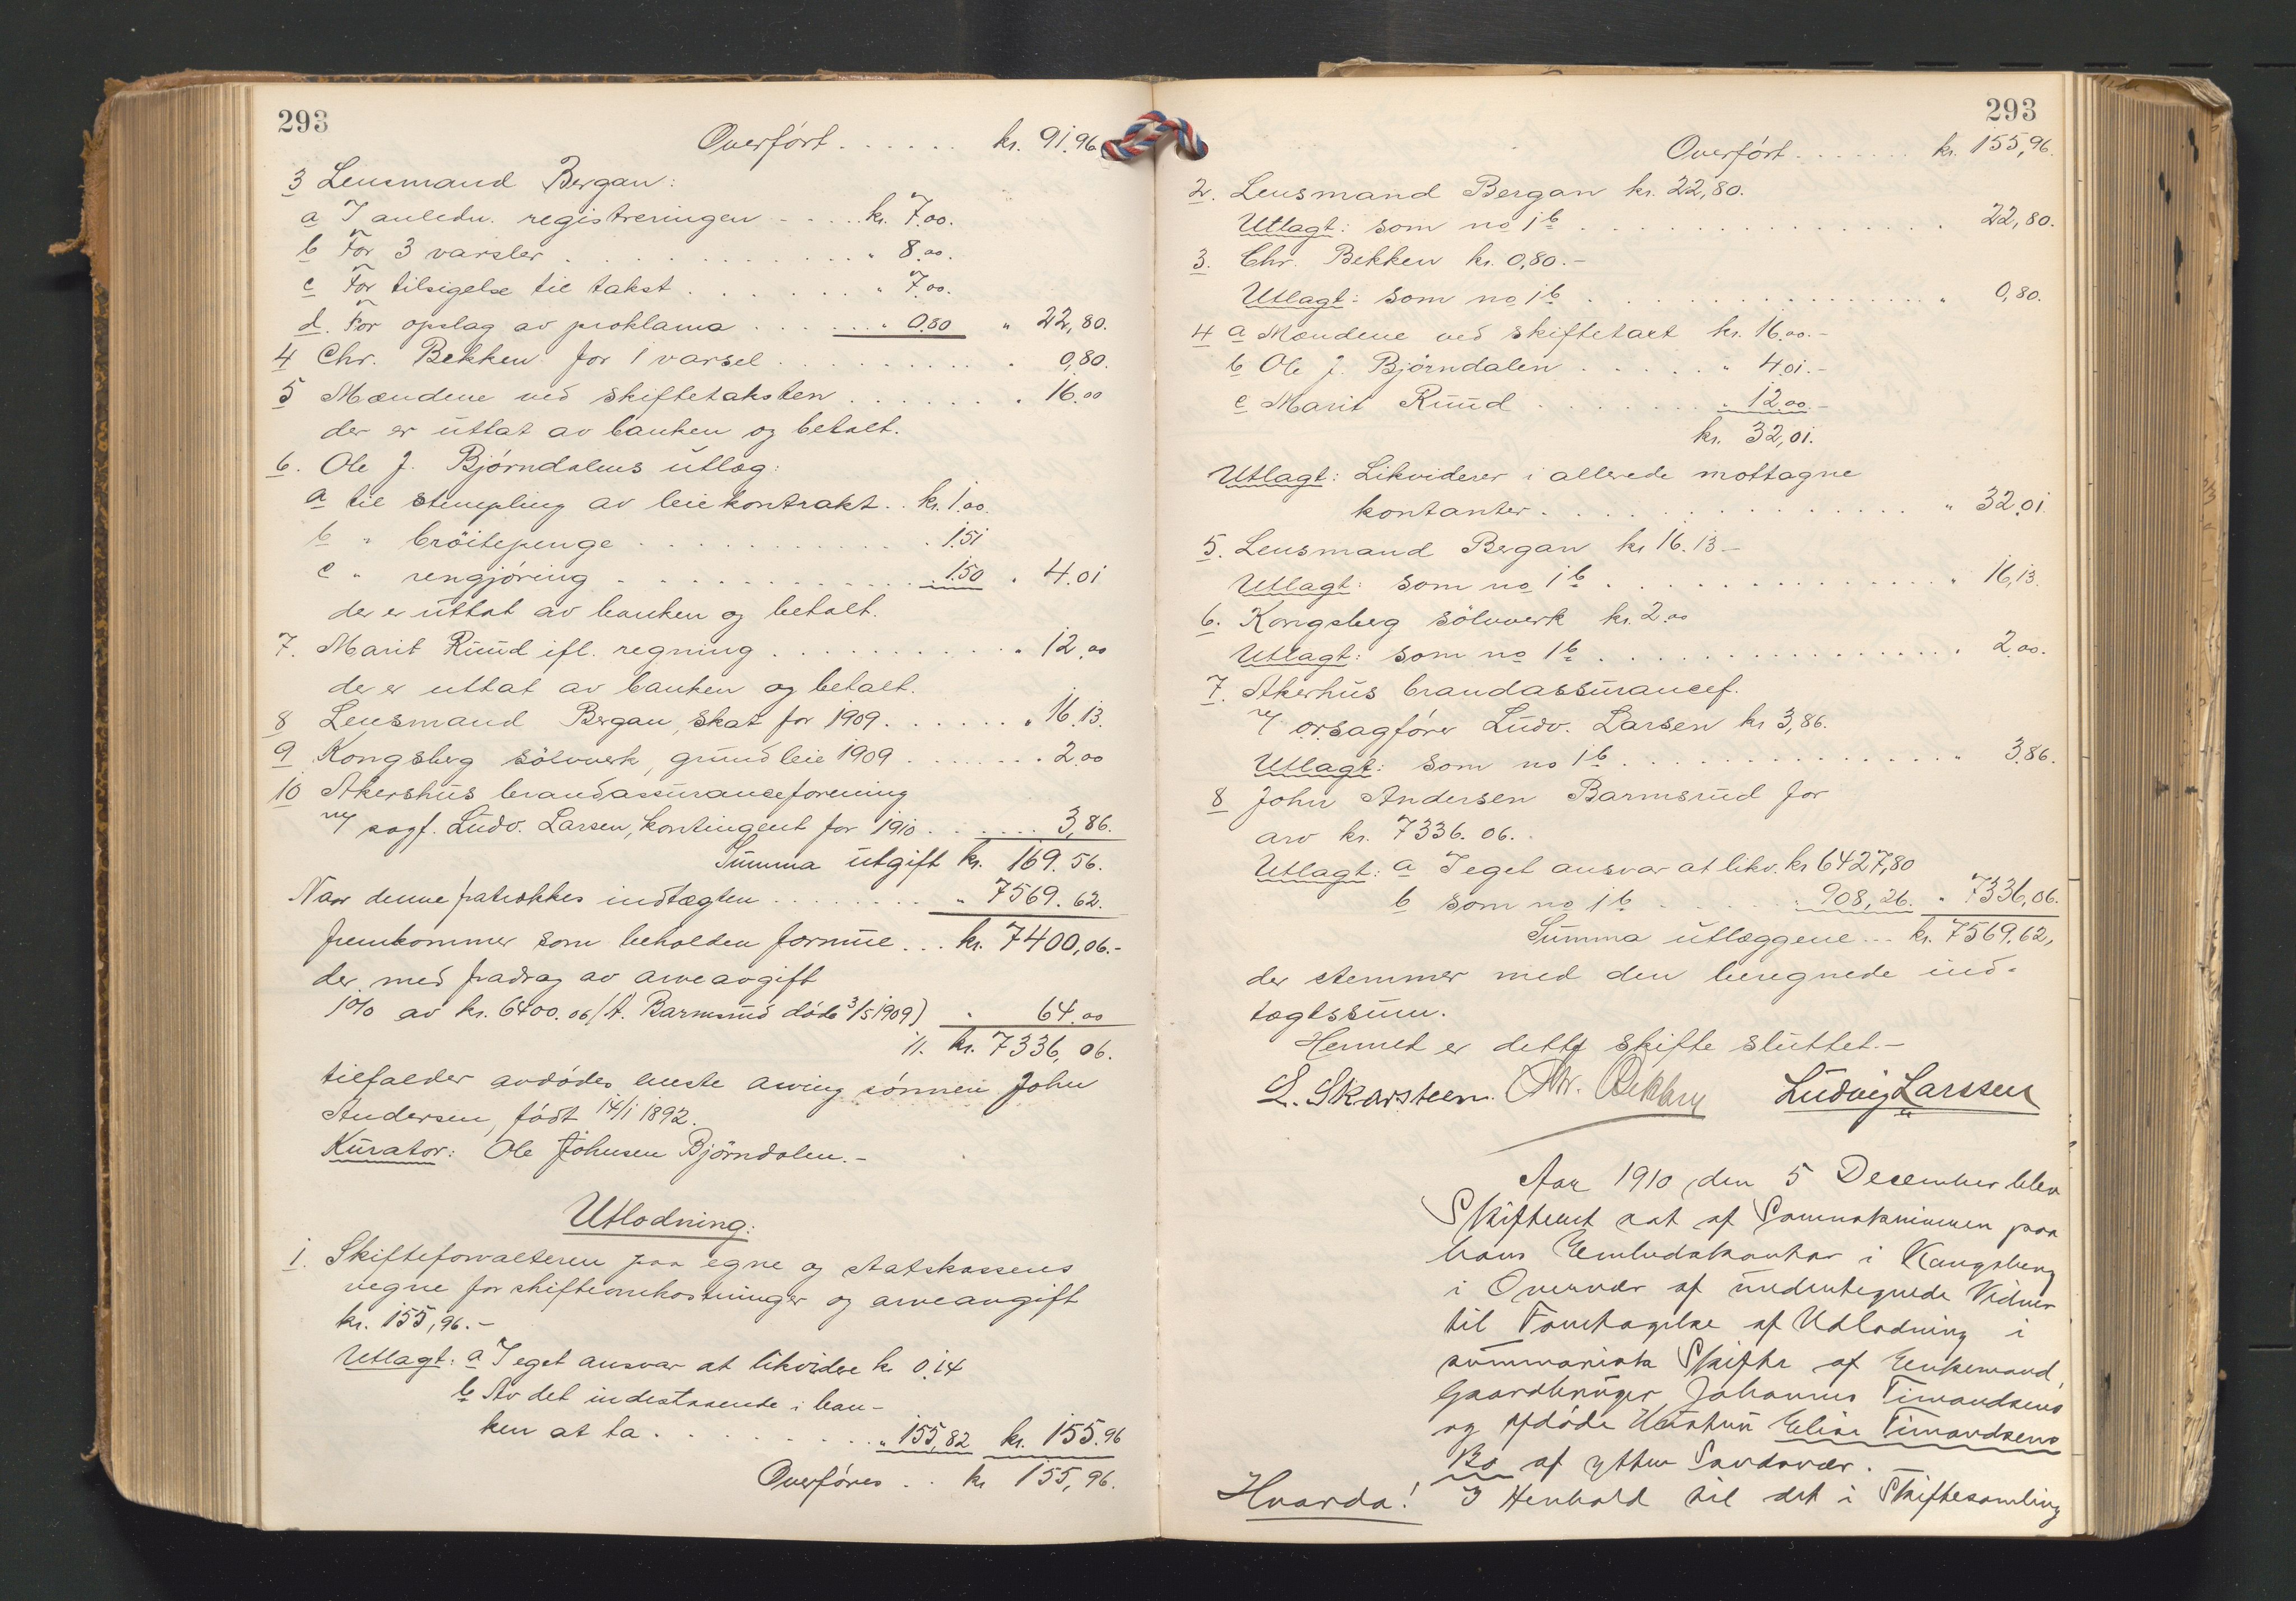 293
Overført . . . . . . kr. 91.96
3 Lensmand Bergan:
a I anledn. registreringen - . . . kr. 7.00.
b For 3 varsler . . . . . . . . . . . " 8.00.
c For tilsigelse til takst . . . . . . . " 7.00.
d. For opslag av proklama . . . . . . " 0.80 " 22,80.
4 Chr. Bekken for 1 varsel . . . . . . . . . . " 0,80.
5 Mændene ved skiftetaksten . . . . . . . " 16.00
der er uttat av banken og betalt.
6. Ole J. Bjørndalens utlæg:
a til stempling av leiekontrakt . . kr. 1.00.
b " brøitepenge . . . . . . . . . . . . 1.51
c " rengjøring . . . . . . . . . . . . . 1.50 " 4.01
der er uttat av banken og betalt.
7. Marit Ruud ifl. regning . . . . . . . . . . " 12.00
der er uttat av banken og betalt.
8 Lensmand Bergan, skat for 1909 . . . . . . . " 16.13.
9 Kongsberg sølvverk, grundleie 1909 . . . . . . . 2.00
10 Akershus brandassuranceforening
v/ sagf. Ludv. Larsen, kontingent for 1910 . . . . . . . 3,86.
Summa utgift kr. 169.56.
Naar denne fratrækkes indtægten . . . . . . . . " 7569.62.
fremkommer som beholden formue . . . kr. 7400,06.-
der med fradrag av arveavgift
1% av kr. 6400.06 (A. Barmsrud døde 3/5 1909) " 64.00
kr. 7336,06.
tilfalder avdødes eneste arving sønnen John
Andersen, født 14/1 1892.
Kurator: Ole Johnsen Bjørndalen.-
Utlodning:
1. Skifteforvalteren paa egne og statskassens
vegne for skifteomkostninger og arveavgift
kr. 155,96.-
Utlagt: a I eget ansvar at likvidere kr 0.14
b Av det indestaaende i ban-
ken at ta . . . . . . . . . " 155,82 kr. 155.96
Overføres . . kr 155,96.
293
Overført . . . . . . . kr. 155,96.
2. Lensmand Bergan kr. 22,80.
Utlagt: som no 1b . . . . . . . . . . . . . . . 22,80.
3. Chr. Bekken kr. 0,80.-
Utlagt: som no 1b . . . . . . . . . . . . . . . " 0,80.
4 a Mændene ved skiftetaxt kr. 16.00.-
b Ole J. Bjørndalen . . . . . . " 4.01.-
c Marit Ruud . . . . . . . " 12.00.-
kr. 32,01.
Utlagt: Likviderer i allerede mottagne
kontanter . . . . . . . . . . . . . . . . " 32.01.
5. Lensmand Bergan kr 16.13-
Utlagt: som no 1b . . . . . . . . . . . . . . " 16,13.
6. Kongsberg sølvverk kr. 2.00
Utlagt: som no 1b . . . . . . . . . . . . . . . . . 2.00.
7. Akerhus brandassurancef.
v/ o.r.sagfører Ludv. Larsen kr 3,86.
Utlagt: som no 1b . . . . . . . . . . . . . . " 3.86.
8 John Andersen Barmsrud for
arv kr. 7336.06.
Utlagt: a I eget ansvar at likv. kr 6427,80
b som no 1b . . . . . . " 908,26. " 7336,06.
Summa utlæggene ... kr. 7569.62,
der stemmer med den beregnede ind-
tægtssum.
Hermed er dette skifte sluttet.-
L. Skarsteen. Chr. Bekken Ludvig Larssen
Aar 1910 den 5 December blev
Skifteret sat af Sorenskriveren paa
hans Embedskontor i Kongsberg
i Overvær af undertegnede Vidner
til Foretagelse af Udlodning i
summarisk Skifte af Enkemand,
Gaardbruger Johannes Timandsens
og afdøde Hustru Elise Timandsens
Bo af ytter Sandsvær.
Hvorda! I Henhold til det i Skiftesamling